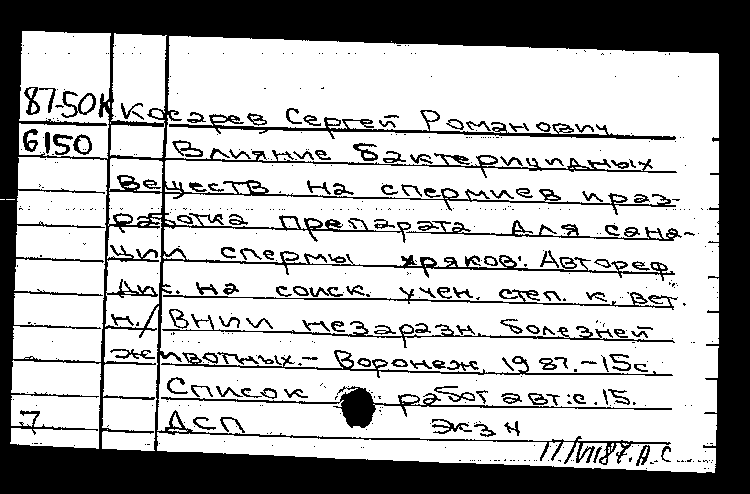 87-50К Косарев, Сергей Романович
6150 Влияние бактерицидных
веществ на спермиев и раз-
работка препарата для сана-
ции спермы хряков: Автореф.
дис. на соиск. учен. степ. к. вет.
н./ ВНИИ незаразн. болезней
животных.- Воронеж, 1987.-15с.
Список работ авт.:с.15.
7 ДСП экз ч
17/VII87. А.С